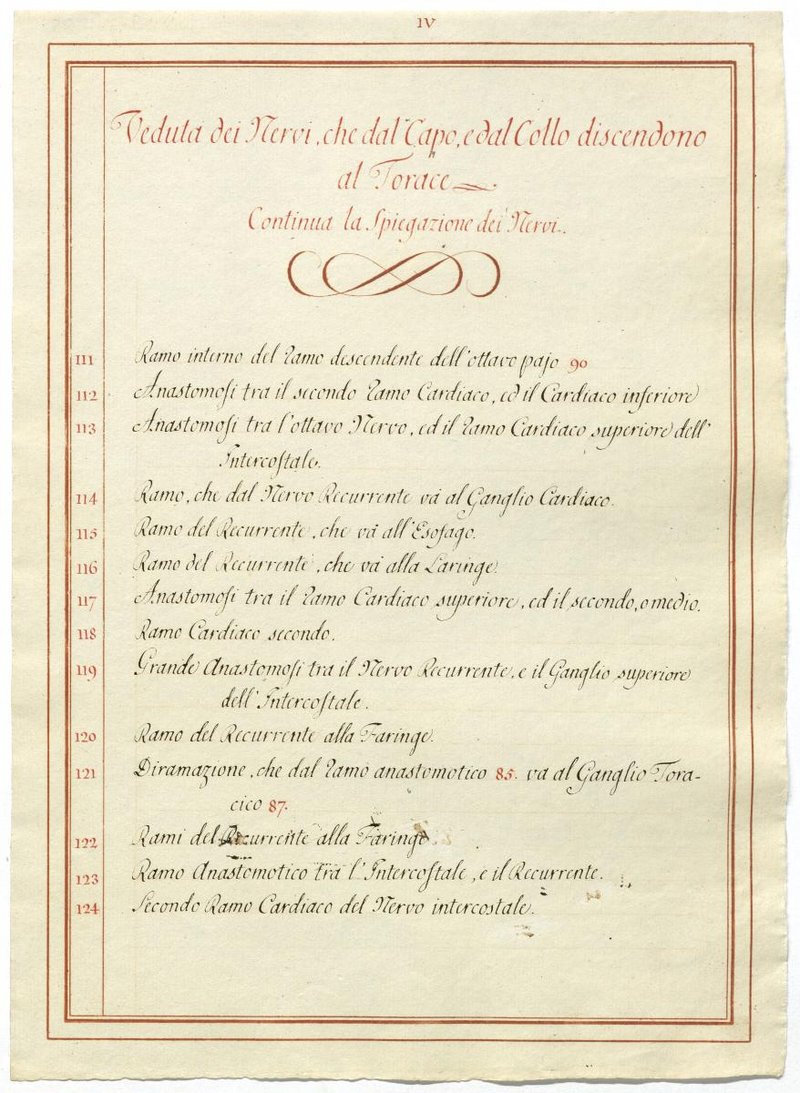 IV
Veduta dei Nervi, che dal Capo, e dal Collo discendono
al Torace
Continua la Spiegazione dei Nervi.
111 Ramo interno del Ramo descendente dell'ottavo pajo 90
112 Anastomosi tra il secondo Ramo Cardiaco, ed il Cardiaco inferiore
113 Anastomosi tra l'ottavo Nervo, ed il Ramo Cardiaco superiore dell'
Intercostale.
114 Ramo, che dal Nervo Recurrente và al Ganglio Cardiaco.
115 Ramo del Recurrente, che và all'Esofago.
116 Ramo del Recurrente, che và alla Laringe.
117 Anastomosi tra il Ramo Cardiaco superiore, ed il secondo, o medio.
118 Ramo Cardiaco secondo.
119 Grande Anastomosi tra il Nervo Recurrente, e il Ganglio superiore
dell'Intercostale.
120 Ramo del Recurrente alla Faringe.
121 Diramazione, che dal Ramo anastomotico 85. và al Ganglio Tora-
cico 87.
122 Rami del Recurrente alla Faringe
123 Ramo Anastomotico tra l'Intercostale, e il Recurrente.
124 Secondo Ramo Cardiaco del Nervo intercostale.